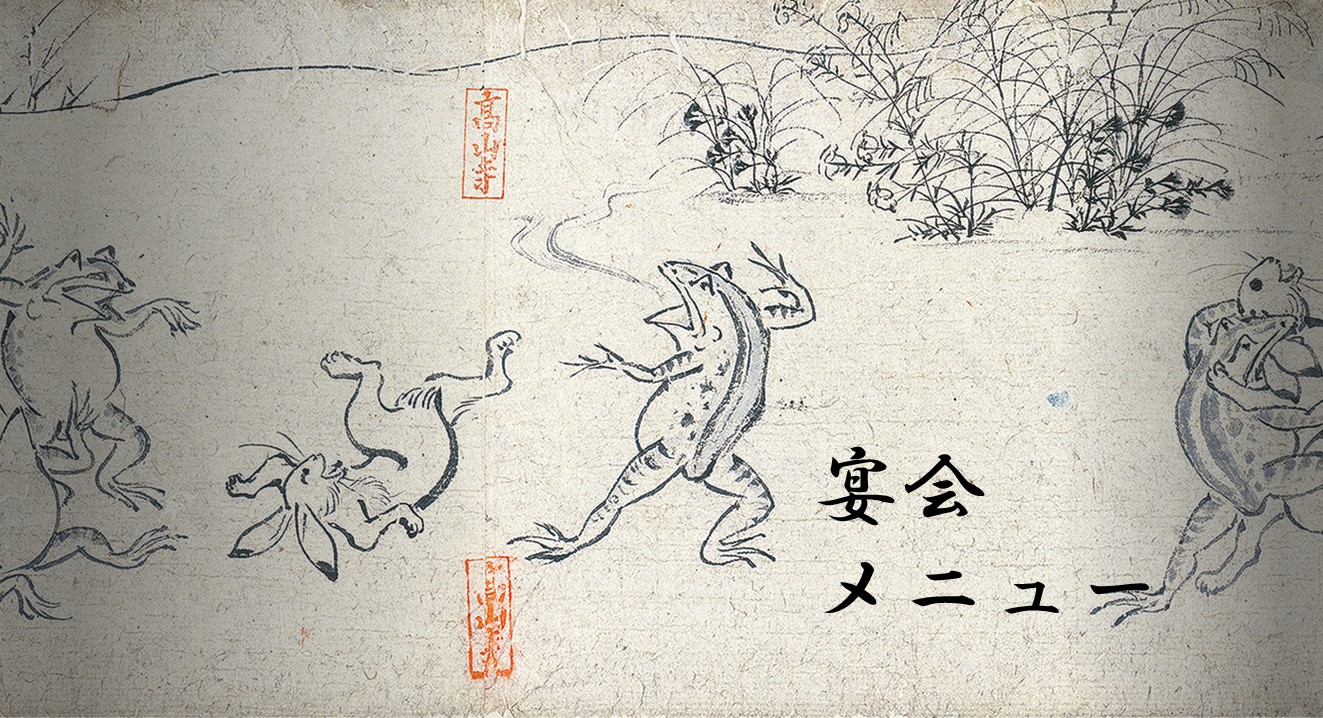 高山寺
宴会
メニュー
高山寺